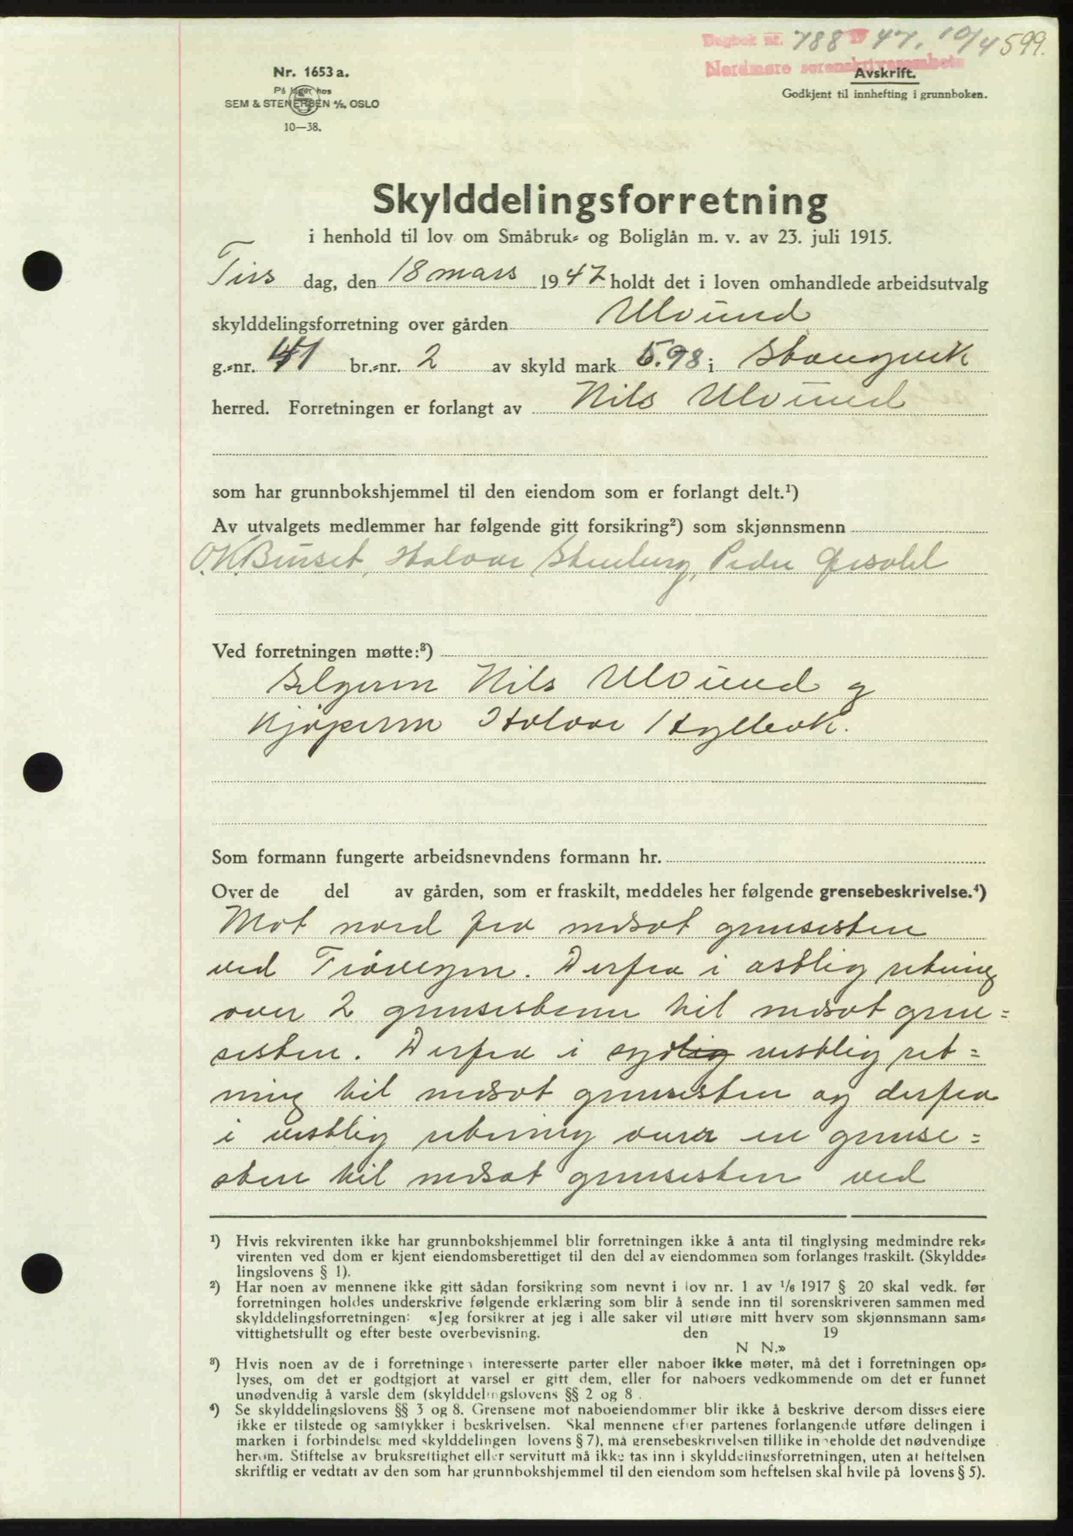 Dagbok nr. 788 1947. 10/4 599.
Nordmøre sorenskriverembete
Nr. 1653 a.
På lager hos
SEM & STENERSEN A/S, OSLO
10—38.
Avskrift.
Godkjent til innhefting i grunnboken.
Skylddelingsforretning
i henhold til lov om Småbruk- og Boliglån m. v. av 23. juli 1915.
Tirs dag, den 18 mars 1947 holdt det i loven omhandlede arbeidsutvalg
skylddelingsforretning over gården Ulvund
g.-nr. 41 br.-nr. 2 av skyld mark 5.98 i Stangvik
herred. Forretningen er forlangt av Nils Ulvund
som har grunnbokshjemmel til den eiendom som er forlangt delt.¹)
Av utvalgets medlemmer har følgende gitt forsikring²) som skjønnsmenn
O.K. Buset, Halvar Stenberg, Peder
Ved forretningen møtte:³)
Selgeren Nils Ulvund og
Kjøperen Halvar Hyllbak.
Som formann fungerte arbeidsnevndens formann hr.
Over de del av gården, som er fraskilt, meddeles her følgende grensebeskrivelse.⁴)
Mot nord fra nedsat grensesten
ved . Derfra i østlig retning
over 2 grensestener til nedsat gren=
sesten. Derfra i sydlig vestlig ret=
ning til nedsat grensesten og derfra
i vestlig retning over en grense=
sten til nedsat grensesten ved
¹) Hvis rekvirenten ikke har grunnbokshjemmel blir forretningen ikke å anta til tinglysing medmindre rek-
virenten ved dom er kjent eiendomsberettiget til den del av eiendommen som forlanges fraskilt. (Skyldde-
lingslovens § 1).
²) Har noen av mennene ikke gitt sådan forsikring som nevnt i lov nr. 1 av 1/6 1917 § 20 skal vedk. før
forretningen holdes underskrive følgende erklæring som blir å sende inn til sorenskriveren sammen med
skylddelingsforretningen: «Jeg forsikrer at jeg i alle saker vil utføre mitt hverv som skjønnsmann sam-
vittighetsfullt og efter beste overbevisning. den 19
N N.»
³) Hvis noen av de i forretningen interesserte parter eller naboer ikke møter, må det i forretningen op-
lyses, om det er godtgjort at varsel er gitt dem, eller for naboers vedkommende om det er funnet
unødvendig å varsle dem (skylddelingslovens §§ 2 og 8 .
⁴) Se skylddelingslovens §§ 3 og 8. Grensene mot naboeiendommer blir ikke å beskrive dersom disses eiere
ikke er tilstede og samtykker i beskrivelsen. Skal mennene efter partenes forlangende utføre delingen i
marken i forbindelse med skylddelingen lovens § 7), må grensebeskrivelsen tillike inneholde det nødvendige
herom. Stiftelse av bruksrettighet eller servitutt må ikke tas inn i skylddelingsforretningen, uten at heftelsen
skriftlig er vedtatt av den som har grunnbokshjemmel til den eiendom som heftelsen skal hvile på lovens § 5).